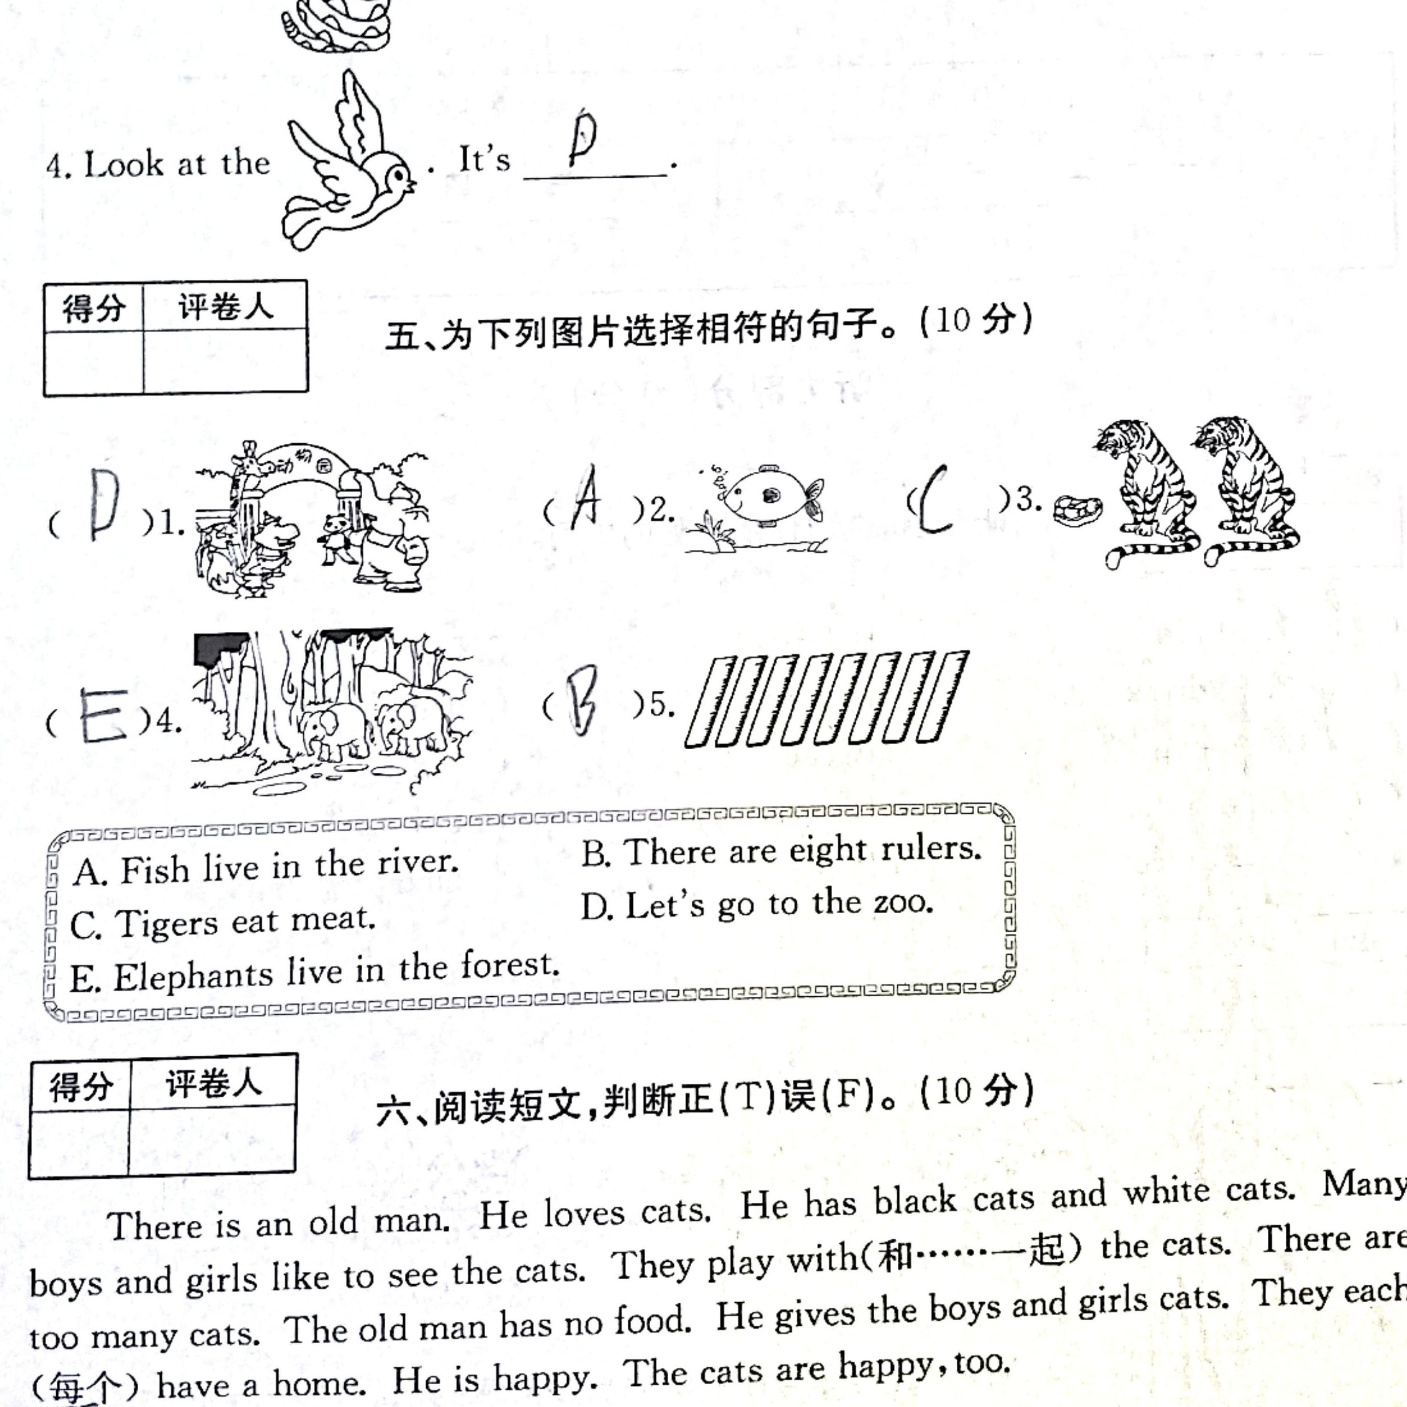 4. Look at the . It's D .
得分 评卷人
五、为下列图片选择相符的句子。(10 分)
动物园
( D )1. ( A )2. ( C )3.
( E )4. ( B )5.
A. Fish live in the river. B. There are eight rulers.
C. Tigers eat meat. D. Let's go to the zoo.
E. Elephants live in the forest.
得分 评卷人
六、阅读短文,判断正(T)误(F)。(10 分)
There is an old man. He loves cats. He has black cats and white cats. Many
boys and girls like to see the cats. They play with(和……一起) the cats. There are
too many cats. The old man has no food. He gives the boys and girls cats. They each
(每个) have a home. He is happy. The cats are happy, too.